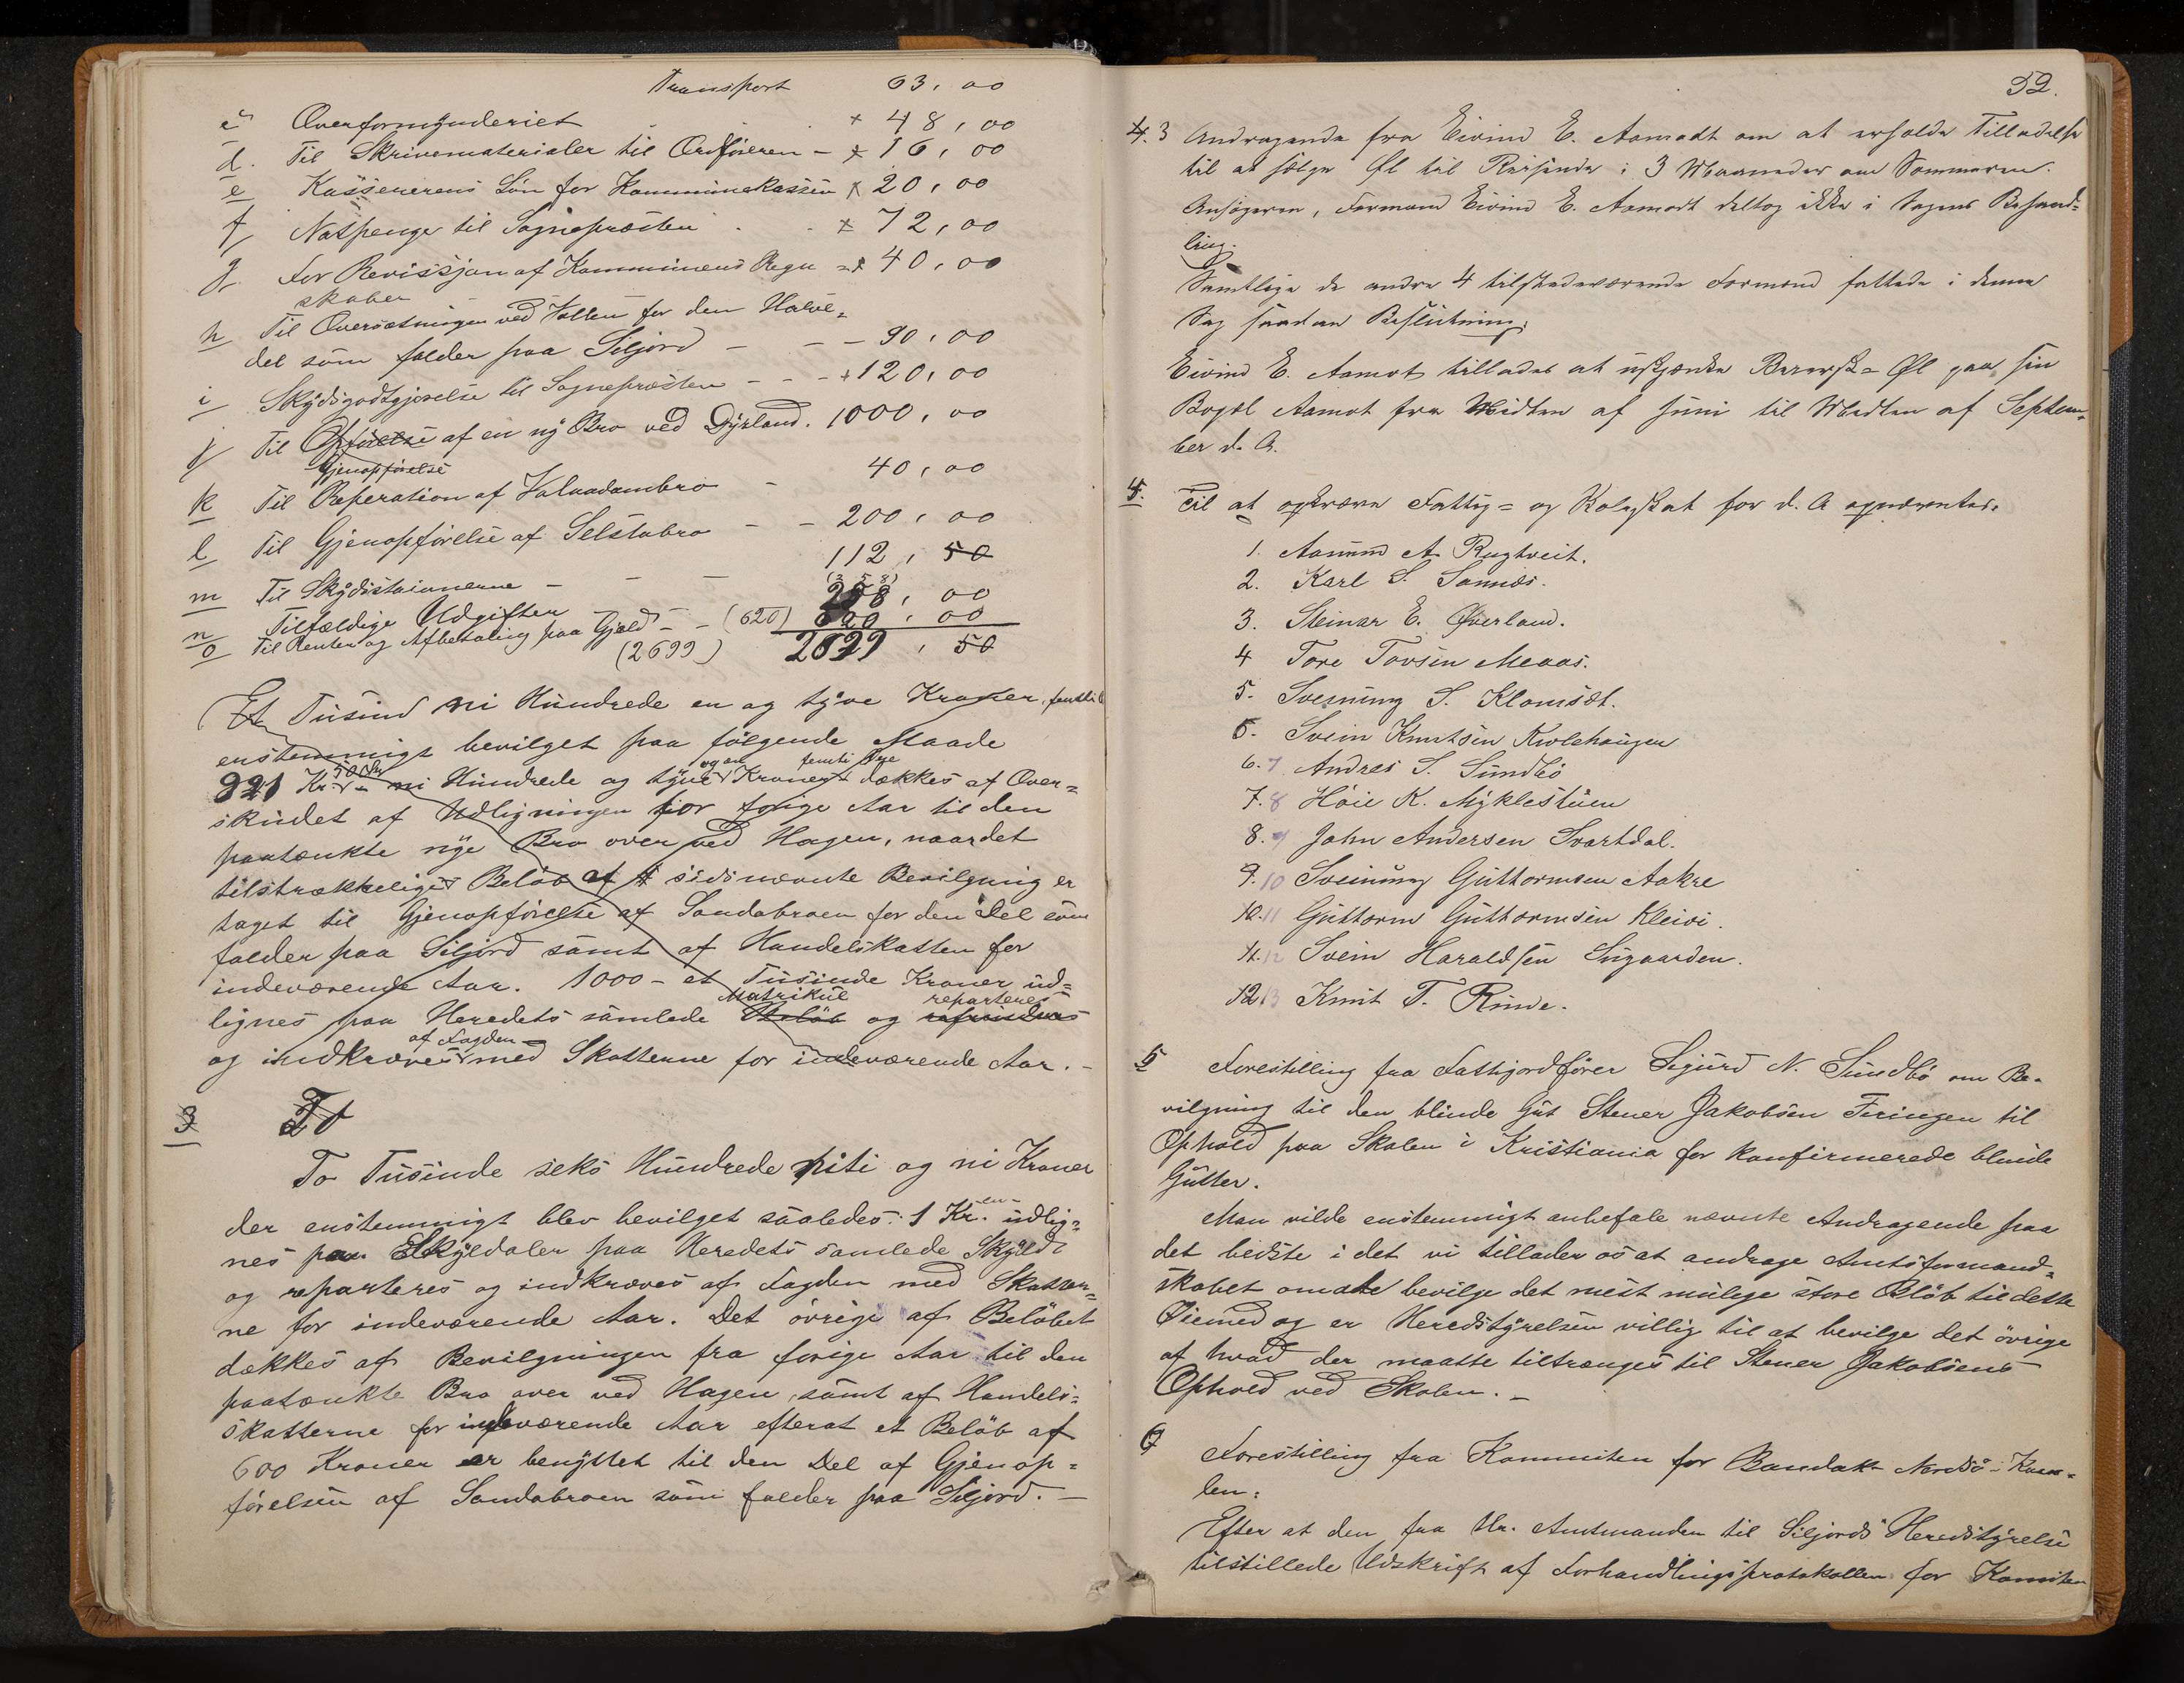 Transport 63,00
c Overformynderiet + 48,00
d. Til Skrivematerialer til Ordföreren - + 16,00
e Kassererens Løn for Kommunekassen + 20,00
f Natpenge til Sognepræsten + 72,00
g For Revissjon af Kommunens Regn = + 40,00
skaber
h Til Oversætningen ved for den Halve-
del som falder paa Siljord - - - 90,00
i Skydsgodtgjørelse til Sognepræsten - - - + 120,00
j Til Opförelse af en ny Bro ved Dyrland. 1000,00
Gjenopförelse
k Til Reperation af - 40,00
l Til Gjenopförelse af Selstabro - - 200,00
m Til Skydsstaionerne - - - 112,50
(258)
n Tilfældige Udgifter 258,00
o Til Renter og Afbetaling paa Gjæld - - (620) 620,00
(2699) 2699,50
Et Tusind ni Hundrede en og tyve Kroner
enstemmigt bevilget paa følgende Maade
50 Øre og en femti Øre
921 Kr. - ni Hundrede og tyve Kroner dækkes af Over-
skudet af Udligningen for forige Aar til den
paatænkte nye Bro over ved Hagen, naar det
tilstrækkelige Beløb af sidsnævnte Bevilgning er
taget til Gjenopförelse af Sondabroen for den Del som
falder paa Siljord samt af Handelskatten for
indeværende Aar. 1000 - et Tusinde Kroner ud-
Matrikul reparteres
lignes paa Heredets samlede Beløb og
af Fogden
og indkræves med Skatterne for indeværende Aar. -
3 To
To Tusinde seks Hundrede niti og ni Kroner
en
der enstemmigt blev bevilget saaledes: 1 Kr. udlig-
nes paa Skyldaler paa Heredets samlede Skyld
og reparteres og indkræves af Fogden med Skatter-
ne for indeværende Aar. Det övrige af Belöbet
dækkes af Bevilgningen fra forige Aar til den
paatænkte Bro over ved Hagen, samt af Handels-
skatterne for indeværende Aar efterat et Belöb af
600 Kroner er benyttet til den Del af Gjenop-
förelsen af Sondabroen som falder paa Siljord. -
52.
4. 3 Andragende fra Eivind E. Aamodt om at erholde Tilladelse
til at sælge Øl til Reisende i 3 Maaneder om Sommeren.
Ansøgeren, Formand Eivind E. Aamodt deltog ikke i Sagens Behand-
ling.
Samtlige de andre 4 tilstedeværende Formænd fattede i denne
Sag saadan Beslutning:
Eivind E. Aamot tillades at udskjænke Baiersk-Øl paa sin
Bopæl Aamot fra Midten af Juni til Midten af Septem-
ber d. A.
4. Til at opkræve Fattig- og Veiskat for d. A opnævntes.
1. Aamund A. Rugtveit.
2. Karl S. Sannæs.
3. Steinar E. Øverland.
4 Tore Tovsen Meaas.
5. Sveinung S. Klomsæt.
6. Svein Knutsen Kivlehaugen
6. 7 Andres S. Sundbö
7. 8 Höie K. Myklestuen
8. 9 John Andersen Svartdal.
9. 10 Sveinung Guttormsen Aakre
10. 11 Guttorm Guttormsen Kleivi.
11. 12 Svein Haraldsen Ungaarden.
12 13 Knut T. Rinde.
5 Forestilling fra Fattigordfører Sigurd N. Sundbö om Be-
vilgning til den blinde Gut Stener Jakobsen Feringen til
Ophold paa Skolen i Kristiania for konfirmerede blinde
Gutter.
Man vilde enstemmigt anbefale nævnte Andragende paa
det bedste i det vi tillader os at andrage Amtsformand-
skabet om at bevilge det mest mulige store Beløb til dette
Øiemed og er Heredstyrelsen villig til at bevilge det övrige
af hvad der maatte tiltrænges til Stener Jakobsens
Ophold ved Skolen. -
6 Forestilling fra Kommiten for Bandak-Nordsö-Kana-
len:
Efter at den fra Hr. Amtmanden til Siljords Heredstyrelse
tilstillede Udskrift af Forhandlingsprotokollen for Komiten